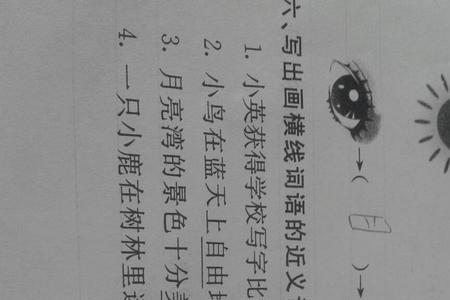 六、写出画横线词语的近义
1. 小英获得学校写字比
2. 小鸟在蓝天上自由
3. 月亮湾的景色十分
4. 一只小鹿在树林里